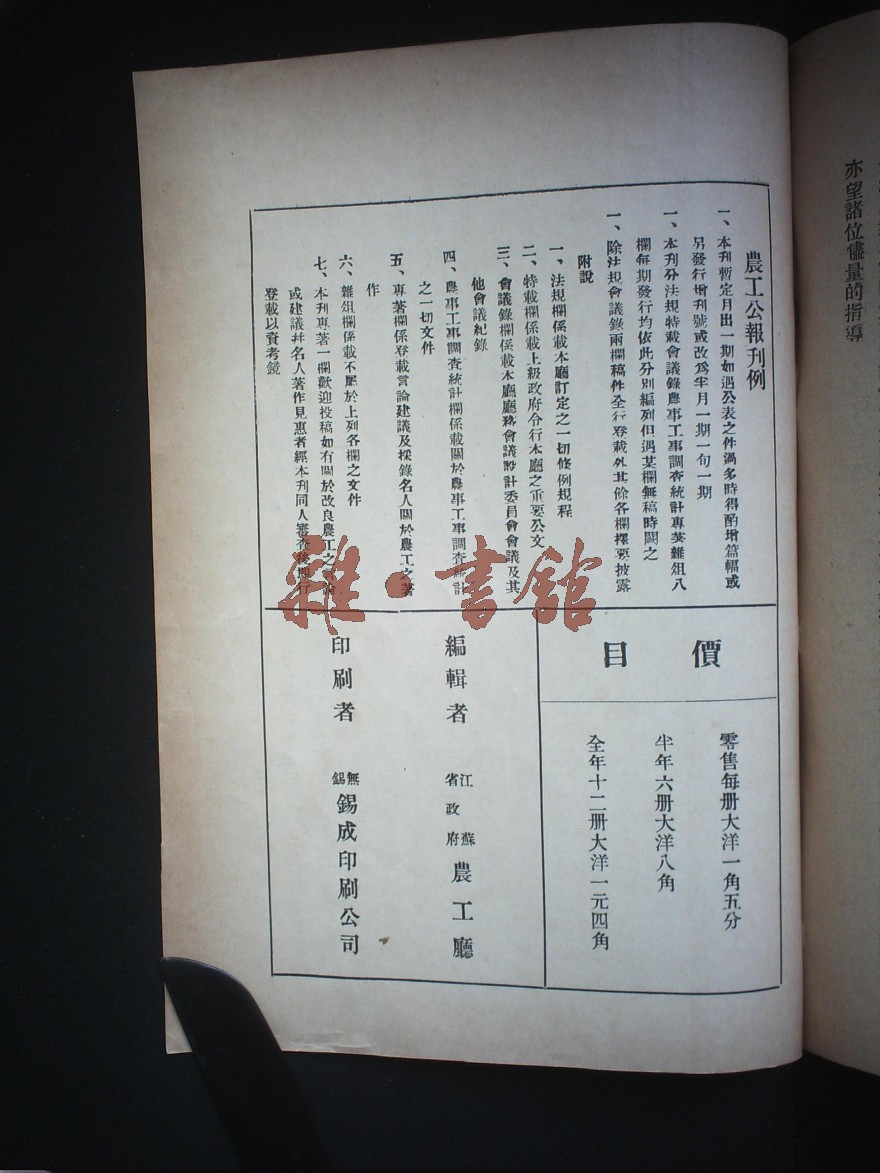 亦望諸位儘量的指導
農工公報刊例
一、本刊暫定月出一期如遇公表之件過多時得酌增篇幅或
另發行增刊號或改爲半月一期一旬一期
一、本刊分法規特載會議錄農事工事調查統計專著雜俎八
欄每期發行均依此分別編列但遇某欄無稿時闕之
一、除法規會議錄兩欄稿件全行登載外其餘各欄擇要披露
附說
一、法規欄係載本廳訂定之一切條例規程
二、特載欄係載上級政府令行本廳之重要公文
三、會議錄欄係載本廳廳務會議設計委員會會議及其
他會議紀錄
四、農事工事調查統計欄係載關於農事工事調查統計
之一切文件
五、專著欄係登載言論建議及採錄名人關於農工之著
作
六、雜俎欄係載不屬於上列各欄之文件
七、本刊專著一欄歡迎投稿如有關於改良農工之言論
或建議幷名人著作見惠者經本刊同人審查後即行
登載以資考鏡
價目
零售每册大洋一角五分
半年六册大洋八角
全年十二册大洋一元四角
編輯者 江蘇省政府農工廳
印刷者 無錫錫成印刷公司
雜·書館